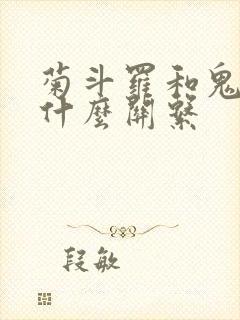 菊斗羅和鬼
什麼關繫
段敏